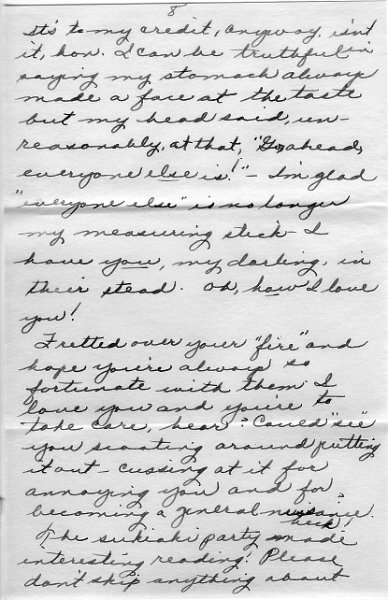 8
It's to my credit, anyway, isn't
it, hon. I can be truthful in
saying my stomach always
made a face at the taste
but my head said, un-
reasonably, at that, "Go ahead,
everyone else is!" - I'm glad
"everyone else" is no longer
my measuring stick - I
have you, my darling, in
their stead. Oh, how I love
you!
Fretted over your "fire" and
hope you're always so
fortunate with them. I
love you and you're to
take care, hear? Could "see"
you scooting around putting
it out - cussing at it for
annoying you and for
becoming a general nuisance.
heck!
The sukiaki party made
interesting reading! Please
don't skip anything about